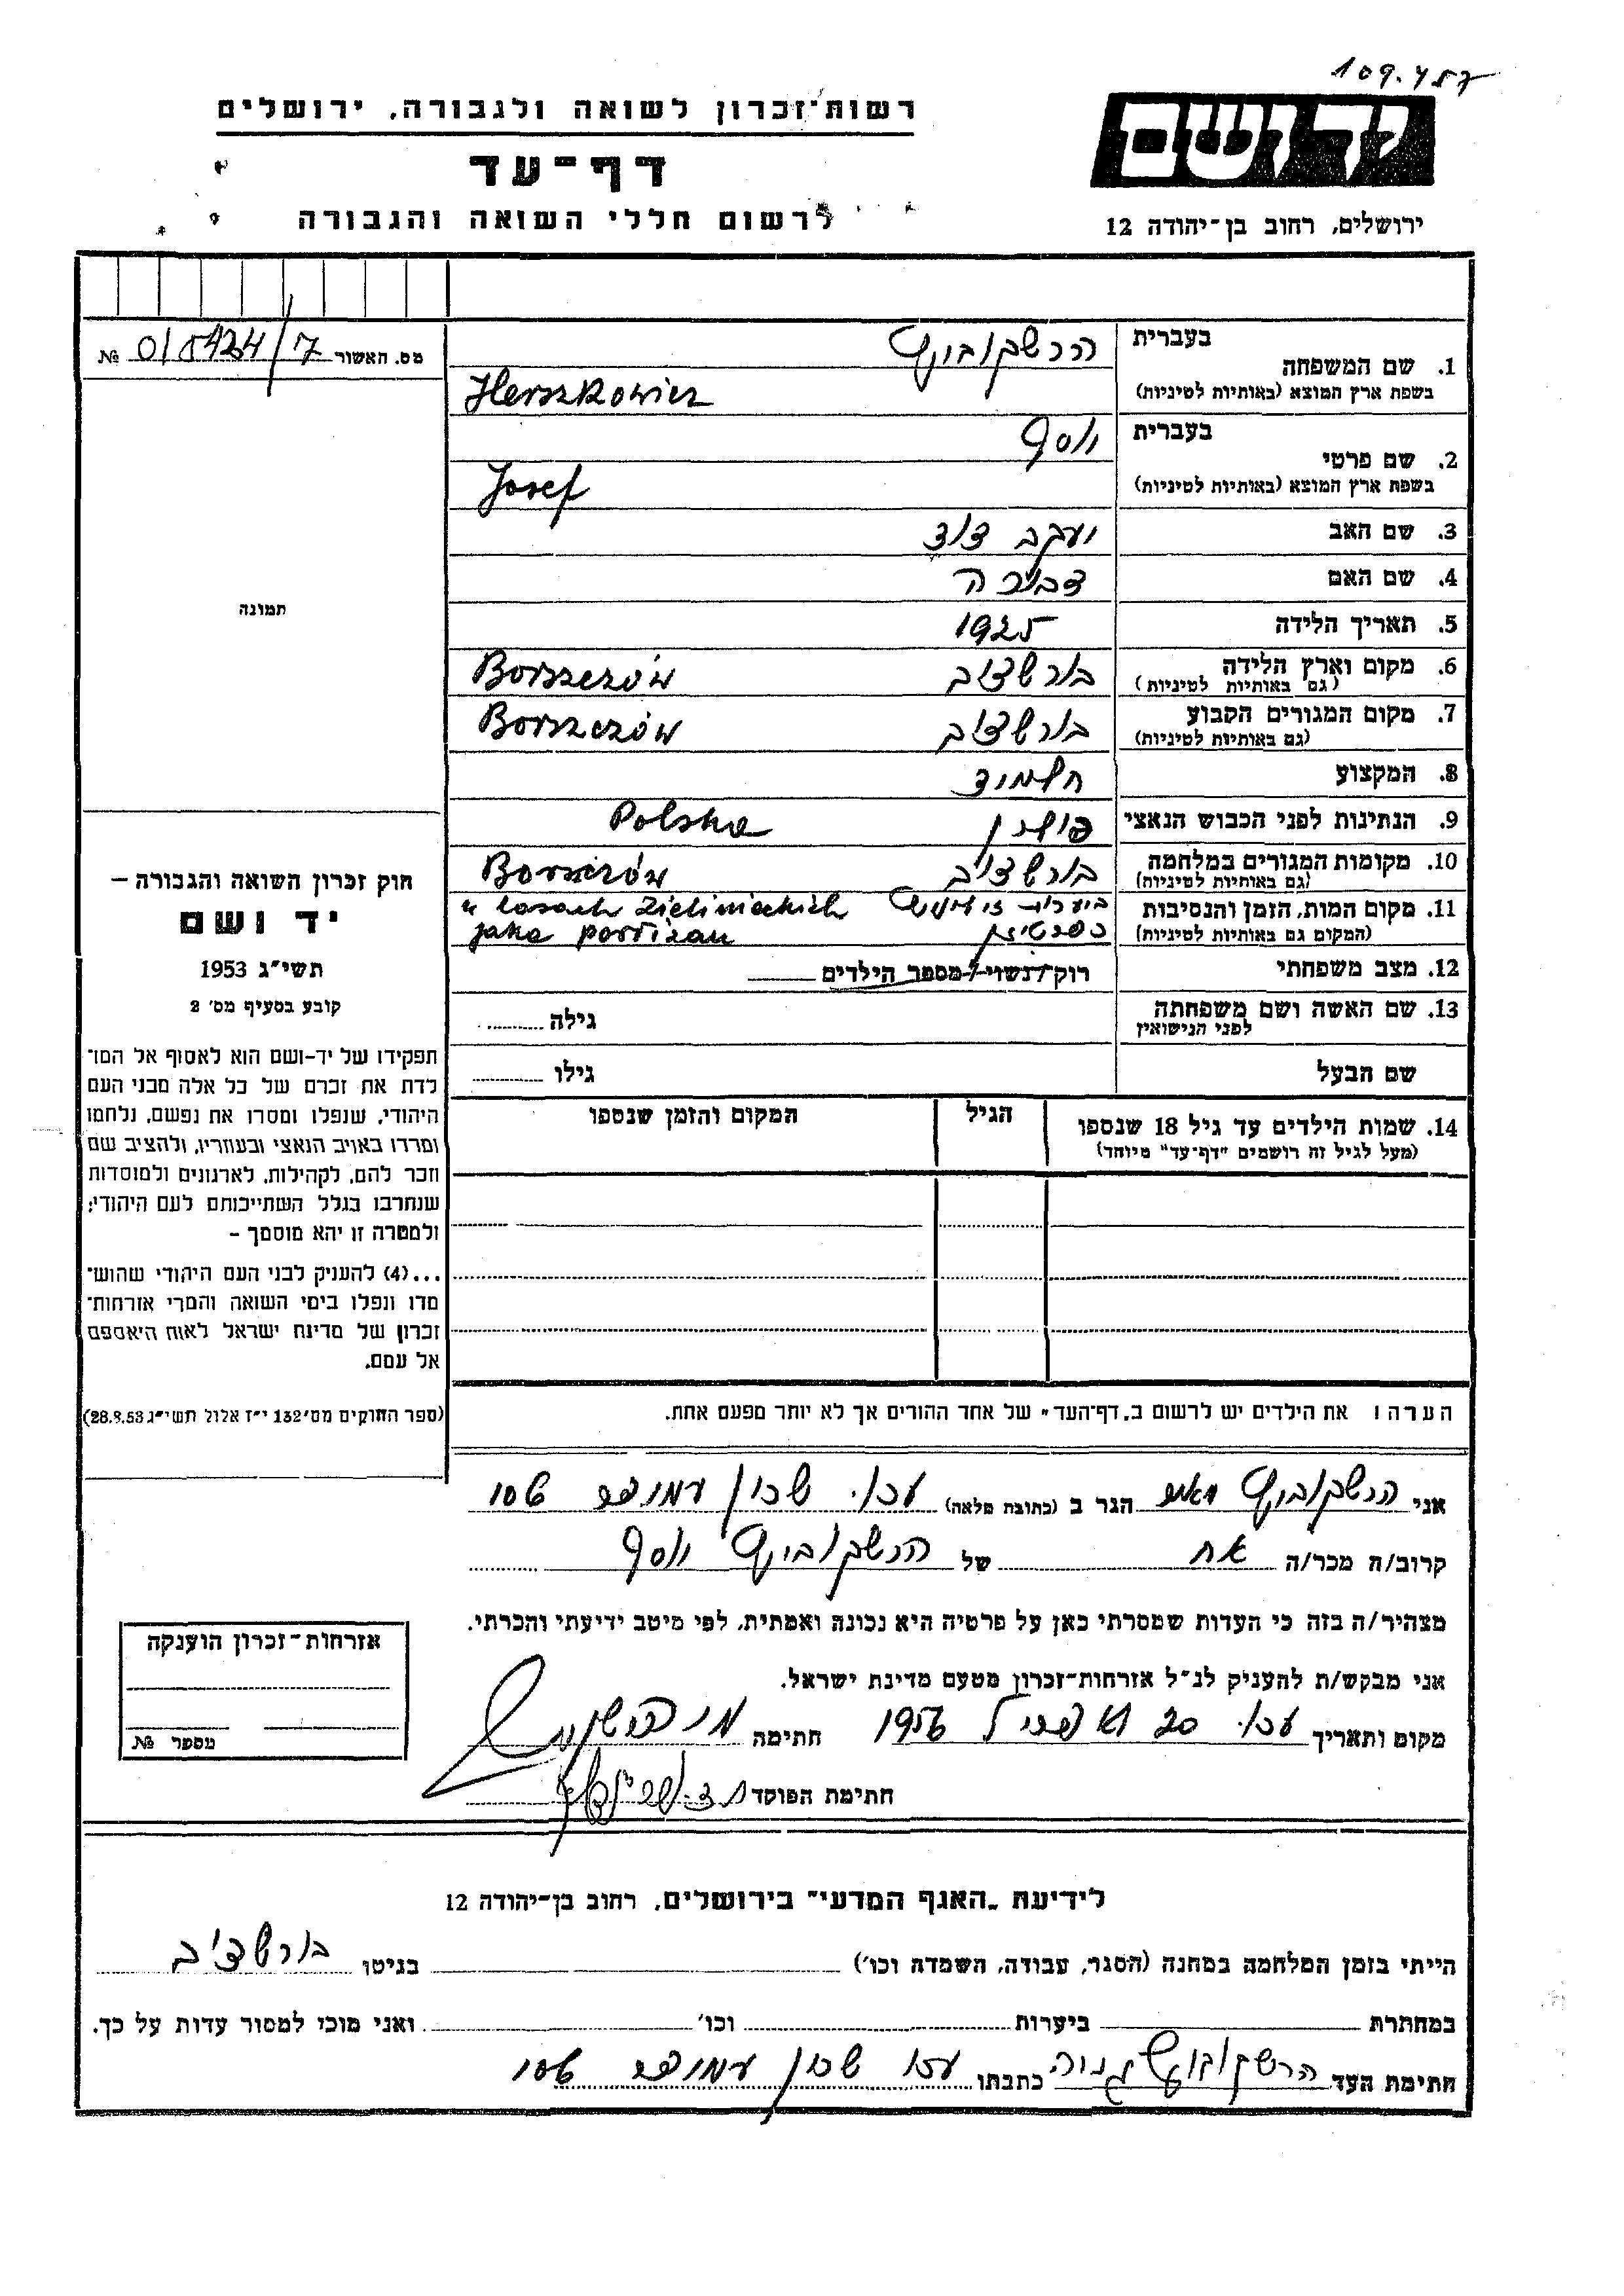 109.457
רשות-זכרון לשואה ולגבורה, ירושלים
יד ושם
דף-עד
לרשום חללי השואה והגבורה
ירושלים, רחוב בן-יהודה 12
מס. האשור №
בעברית הרשקוביץ
1. שם המשפחה
בשפת ארץ המוצא (באותיות לטיניות) Herszkowicz
בעברית יוסף
2. שם פרטי
בשפת ארץ המוצא (באותיות לטיניות) Josef
3. שם האב יעקב דוד
4. שם האם דבורה
5. תאריך הלידה 1925
6. מקום וארץ הלידה בורשצוב Borszczów
(גם באותיות לטיניות)
7. מקום המגורים הקבוע בורשצוב Borszczów
(גם באותיות לטיניות)
8. המקצוע תלמיד
9. הנתינות לפני הכבוש הנאצי פולין Polska
10. מקומות המגורים במלחמה בורשצוב Borszczów
(גם באותיות לטיניות)
11. מקום המות, הזמן והנסיבות ביערות w lasach
(המקום גם באותיות לטיניות) כפרטיזן jako partizan
12. מצב משפחתי רווק/נשוי/מספר הילדים
13. שם האשה ושם משפחתה גילה
לפני הנישואין
שם הבעל גילו
14. שמות הילדים עד גיל 18 שנספו הגיל המקום והזמן שנספו
(מעל לגיל זה רושמים "דף-עד" מיוחד)
תמונה
חוק זכרון השואה והגבורה –
יד ושם
תשי"ג 1953
קובע בסעיף מס' 2
תפקידו של יד-ושם הוא לאסוף אל המו־
לדת את זכרם של כל אלה מבני העם
היהודי, שנפלו ומסרו את נפשם, נלחמו
ומרדו באויב הנאצי ובעוזריו, ולהציב שם
וזכר להם, לקהילות, לארגונים ולמוסדות
שנחרבו בגלל השתייכותם לעם היהודי;
ולמטרה זו יהא מוסמך –
...(4) להעניק לבני העם היהודי שהוש־
מדו ונפלו בימי השואה והמרי אזרחות־
זכרון של מדינת ישראל לאות היאספם
אל עמם.
(ספר החוקים מס' 132 י"ז אלול תשי"ג 28.8.53)
הערה: את הילדים יש לרשום ב„דף-העד" של אחד ההורים אך לא יותר מפעם אחת.
אני הרשקוביץ הגר ב (כתובת מלאה) עכו. שכון עמידר
קרוב/ה מכר/ה אח של הרשקוביץ יוסף
מצהיר/ה בזה כי העדות שמסרתי כאן על פרטיה היא נכונה ואמתית, לפי מיטב ידיעתי והכרתי.
אני מבקש/ת להעניק לנ"ל אזרחות-זכרון מטעם מדינת ישראל.
מקום ותאריך עכו. 20 אפריל 1956 חתימה
חתימת הפוקד
אזרחות-זכרון הוענקה
מספר №
לידיעת „האגף המדעי" בירושלים, רחוב בן-יהודה 12
הייתי בזמן המלחמה במחנה (הסגר, עבודה, השמדה וכו') בגיטו בורשצ'ב
במחתרת ביערות וכו' ואני מוכן למסור עדות על כך.
חתימת העד הרשקוביץ כתבתו עכו שכון עמידר